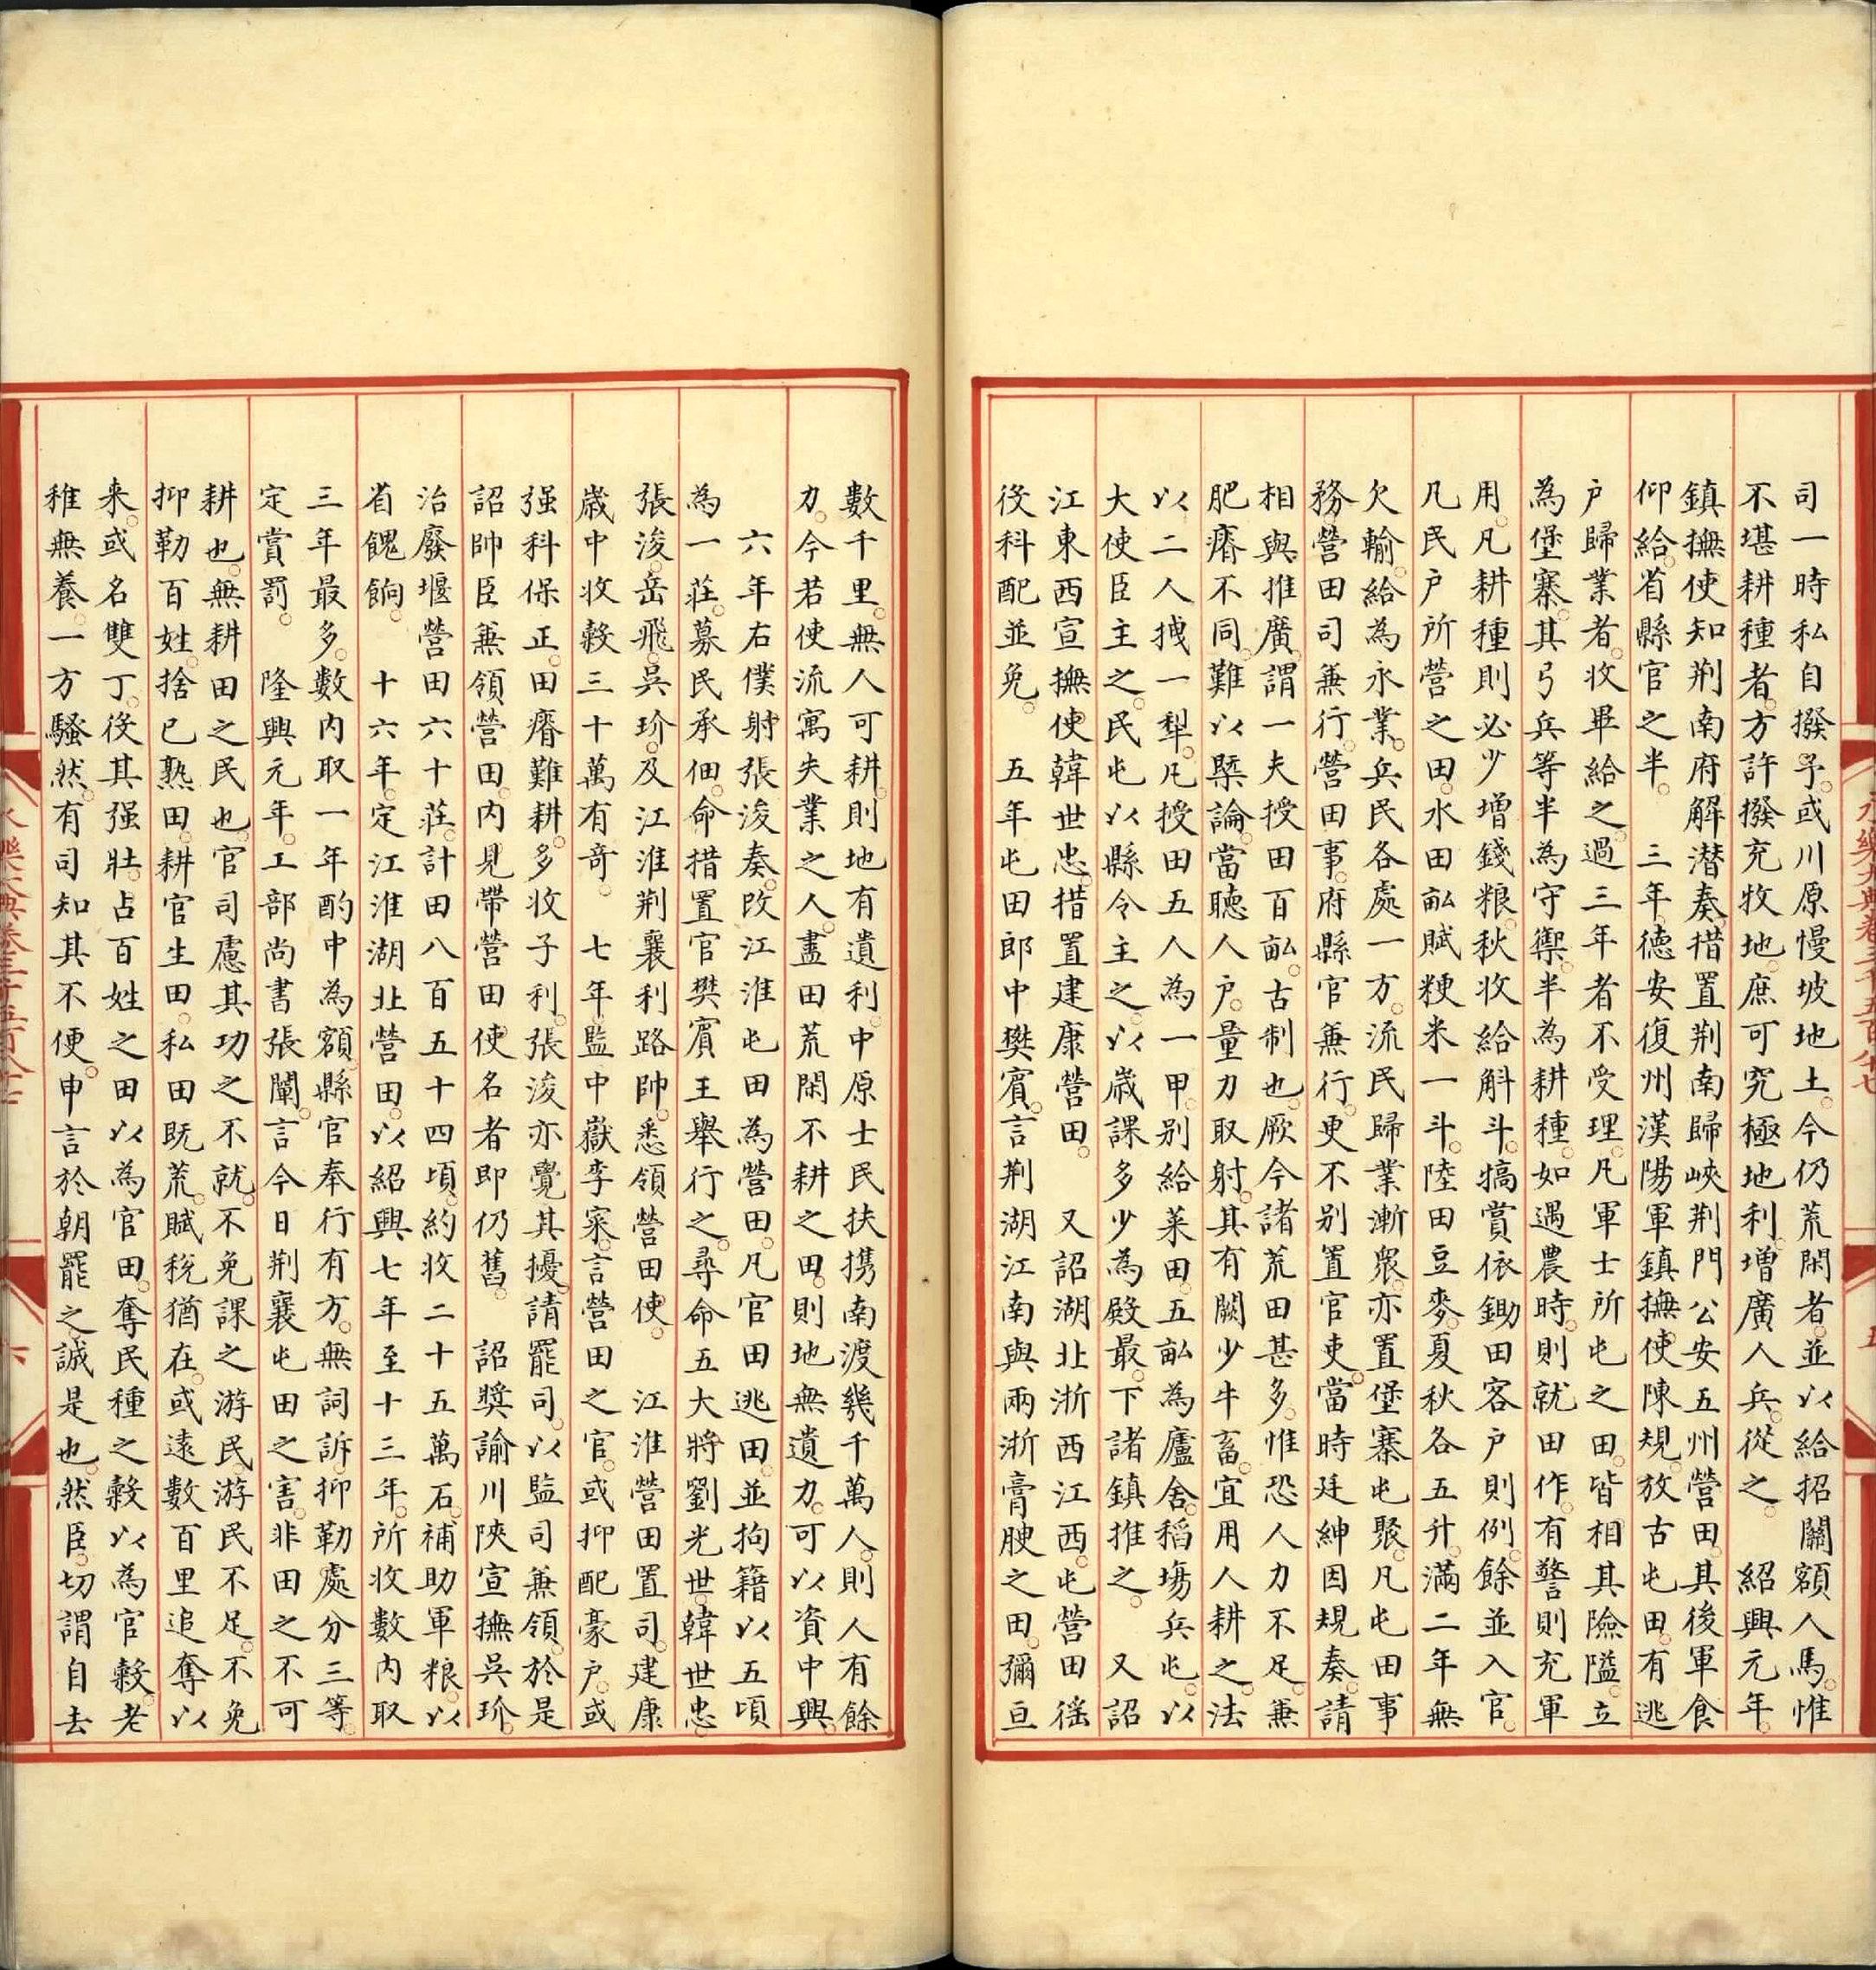 司一時私自撥予或川原慢坡地土今仍荒閑者並以給招關額人馬惟
不堪耕種者方許撥充牧地庶可究極地利增廣人兵從之　紹興元年
鎮撫使知荆南府解潛奏措置荆南歸峽荆門公安五州營田其後軍食
仰給省縣官之半　三年德安復州漢陽軍鎮撫使陳規放古屯田有逃
户歸業者收畢給之過三年者不受理凡軍士所屯之田皆相其險隘立
為堡寨其弓兵等半為守禦半為耕種如遇農時則就田作有警則充軍
用凡耕種則必少增錢粮秋收給斛斗犒賞依鋤田客户則例餘並入官
凡民户所營之田水田畝賦粳米一斗陸田豆麥夏秋各五升滿二年無
欠輸給為永業兵民各處一方流民歸業漸衆亦置堡寨屯聚凡屯田事
務營田司兼行營田事府縣官兼行更不别置官吏當時廷紳因規奏請
相與推廣謂一夫授田百畝古制也厥今諸荒田甚多惟恐人力不足兼
肥瘠不同難以槩論當聽人户量力取射其有闕少牛畜宜用人耕之法
以二人拽一犁凡授田五人為一甲别給菜田五畝為廬舍稻塲兵屯以
大使臣主之民屯以縣令主之以歲課多少為殿最下諸鎮推之　又詔
江東西宣撫使韓世忠措置建康營田　又詔湖北浙西江西屯營田徭
役科配並免　五年屯田郎中樊賓言荆湖江南與兩浙膏腴之田彌亘
數千里無人可耕則地有遺利中原士民扶携南渡幾千萬人則人有餘
力今若使流寓失業之人盡田荒閑不耕之田則地無遺力可以資中興
六年右僕射張浚奏改江淮屯田為營田凡官田逃田並拘籍以五頃
為一莊募民承佃命措置官樊賓王舉行之尋命五大將劉光世韓世忠
張浚岳飛吳玠及江淮荆襄利路帥悉領營田使　江淮營田置司建康
歲中收穀三十萬有奇　七年監中嶽李寀言營田之官或抑配豪户或
强科保正田瘠難耕多收子利張浚亦覺其擾請罷司以監司兼領於是
詔帥臣兼領營田内見帶營田使名者即仍舊　詔奬諭川陝宣撫吳玠
治廢堰營田六十莊計田八百五十四頃約收二十五萬石補助軍粮以
省餽餉　十六年定江淮湖北營田以紹興七年至十三年所收數内取
三年最多數内取一年酌中為額縣官奉行有方無詞訴抑勒處分三等
定賞罰　隆興元年工部尚書張闡言今日荆襄屯田之害非田之不可
耕也無耕田之民也官司慮其功之不就不免課之游民游民不足不免
抑勒百姓捨已熟田耕官生田私田既荒賦稅猶在或遠數百里追奪以
来或名雙丁役其强壯占百姓之田以為官田奪民種之穀以為官穀老
稚無養一方騷然有司知其不便申言於朝罷之誠是也然臣切謂自去